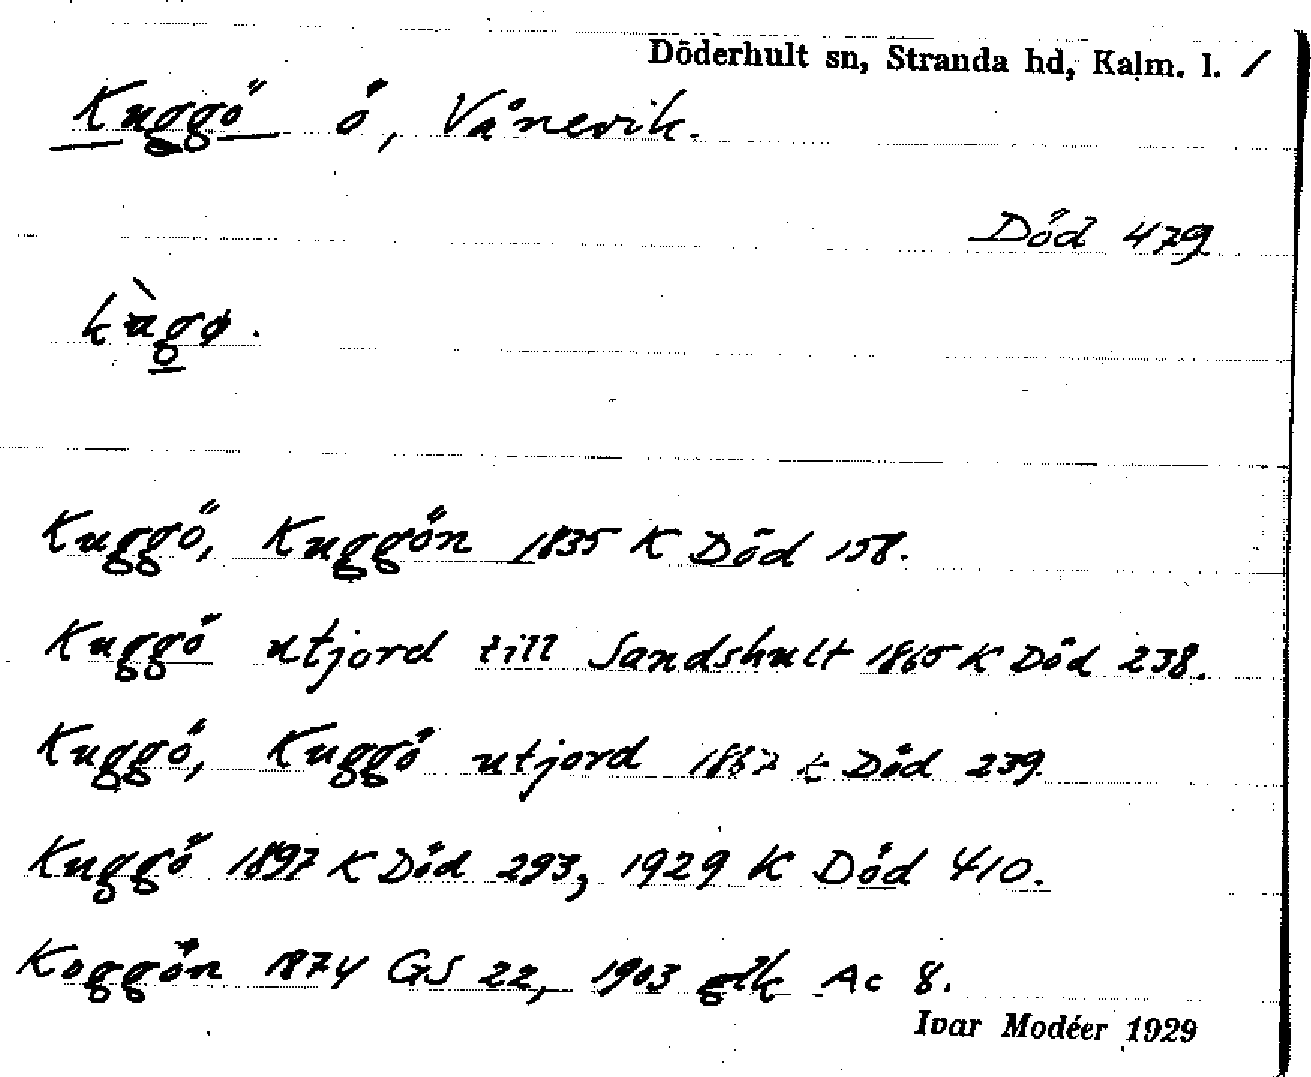 Döderhult sn, Stranda hd, Kalm. l. /
Kuggö ö, Vånevik.
Död 479
kùgø.
Kuggö, Kuggön 1835 K Död 158.
Kuggö utjord till Sandshult 1865 K Död 238.
Kuggö, Kuggö utjord 1867 K Död 239.
Kuggö 1897 K Död 293, 1929 K Död 410.
Koggön 1874 GS 22, 1903 glk Ac 8.
Ivar Modéer 1929